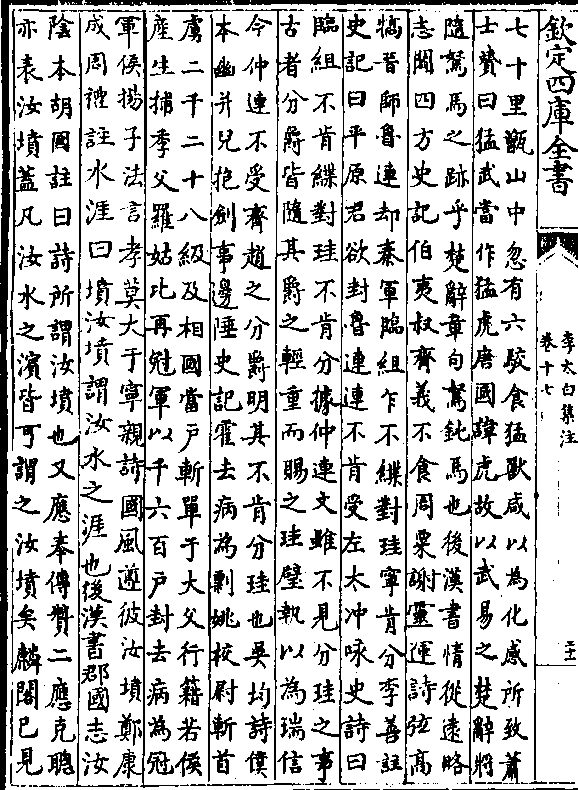 欽定四庫全書
李太白集注
卷十七
七十里甑山中忽有六駮食猛獸咸以為化感所致蕭
士贇曰猛武當作猛虎唐國諱虎故以武易之楚辭將
隨駑馬之跡乎楚辭章句駑鈍馬也後漢書情從遠略
志闊四方史記伯夷叔齊義不食周粟謝靈運詩弦高
犒晉師魯連却秦軍臨組乍不緤對珪寧肯分李善註
史記曰平原君欲封魯連連不肯受左太冲咏史詩曰
臨組不肯緤對珪不肯分據仲連文雖不見分珪之事
古者分爵皆隨其爵之輕重而賜之珪璧執以為瑞信
今仲連不受齊趙之分爵明其不肯分珪也吳均詩僕
本幽并兒抱劍事邊陲史記霍去病為剽姚校尉斬首
虜二千二十八級及相國當戶斬單于大父行籍若侯
產生捕季父羅姑比再冠軍以千六百戶封去病為冠
軍侯揚子法言孝莫大于寧親詩國風遵彼汝墳鄭康
成周禮註水涯曰墳汝墳謂汝水之涯也後漢書郡國志汝
陰本胡國註曰詩所謂汝墳也又應奉傳贊二應克聰
亦表汝墳蓋凡汝水之濱皆可謂之汝墳矣麟閣已見